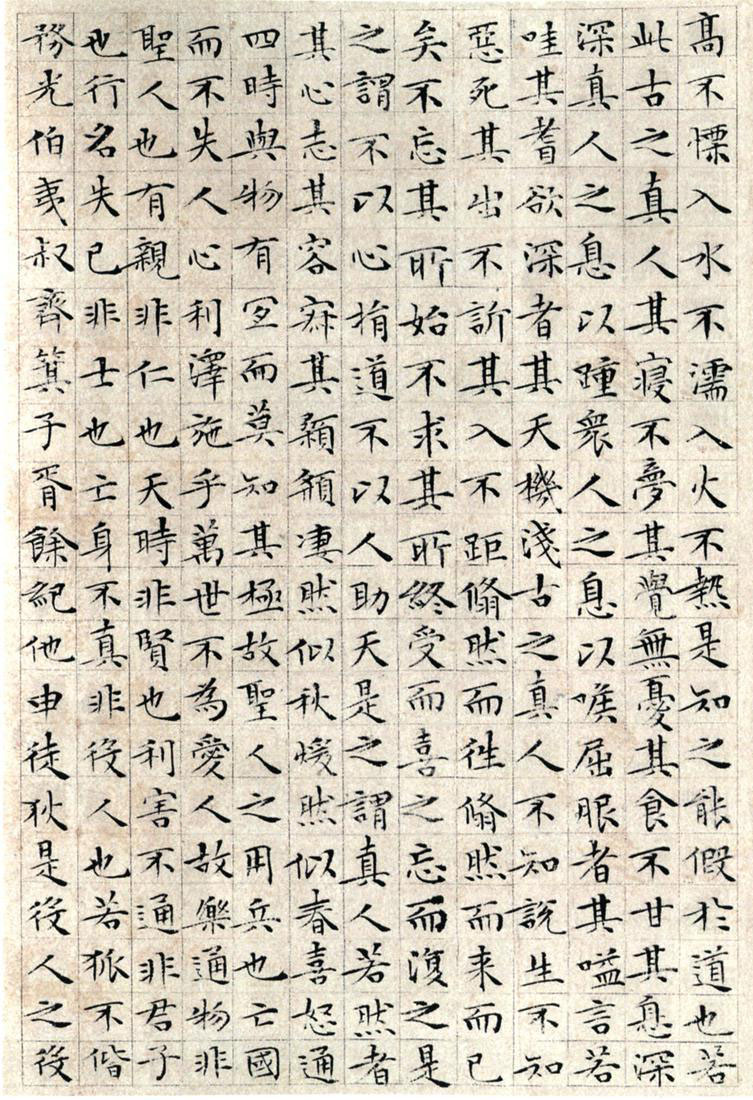 高不慄入水不濡入火不熱是知之能假於道也若
此古之真人其寢不夢其覺無憂其食不甘其息深
深真人之息以踵衆人之息以喉屈服者其嗌言若
哇其耆欲深者其天機淺古之真人不知說生不知
惡死其出不訢其入不距翛然而往翛然而来而已
矣不忘其所始不求其所終受而喜之忘而復之是
之謂不以心捐道不以人助天是之謂真人若然者
其心志其容寂其顙頯凄然似秋煖然似春喜怒通
四時與物有宜而莫知其極故聖人之用兵也亡國
而不失人心利澤施乎萬世不為愛人故樂通物非
聖人也有親非仁也天時非賢也利害不通非君子
也行名失己非士也亡身不真非役人也若狐不偕
務光伯夷叔齊箕子胥餘紀他申徒狄是役人之役